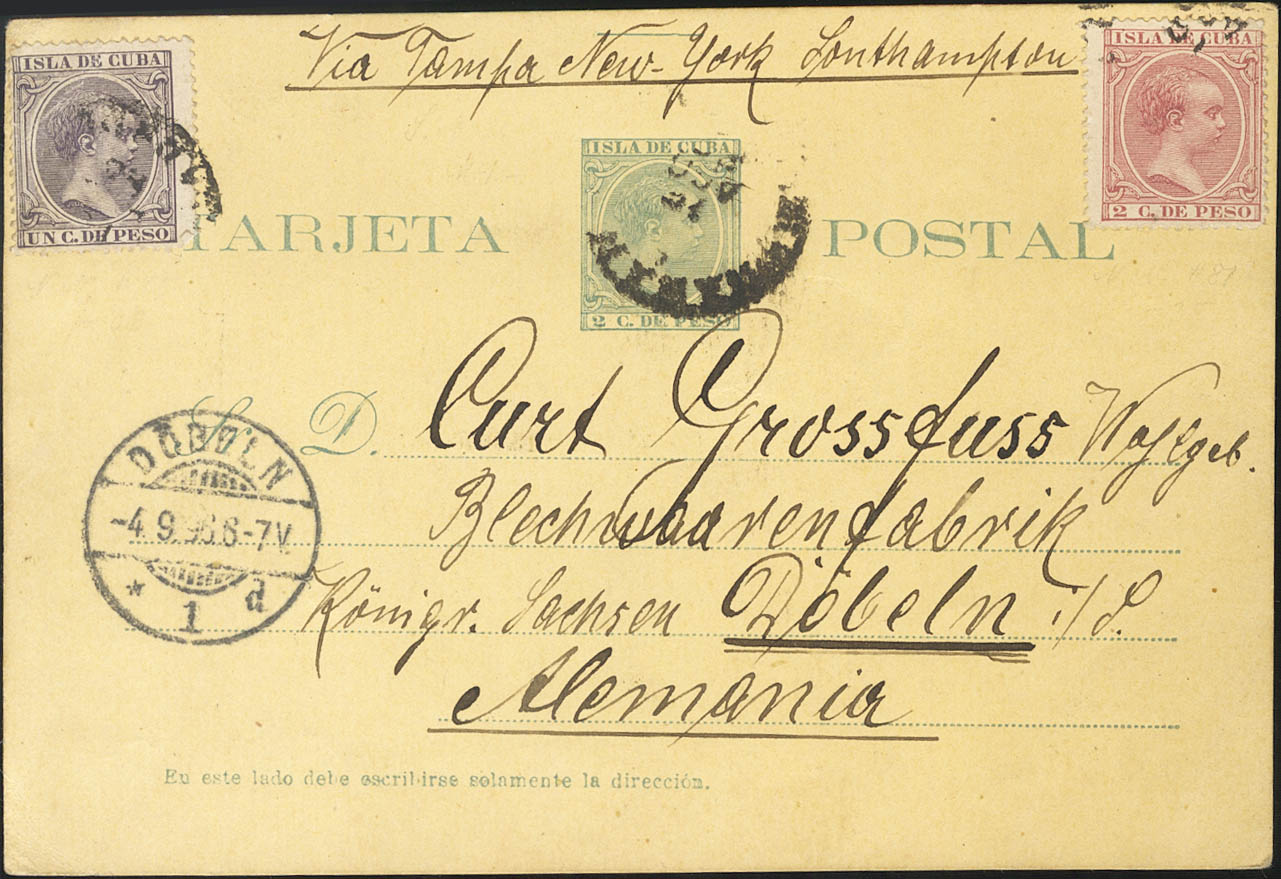 Via Tampa New-York Southampton
ISLA DE CUBA
UN C. DE PESO
ISLA DE CUBA
2 C. DE PESO
ISLA DE CUBA
2 C. DE PESO
TARJETA POSTAL
S. D. Curt Grossfuss Wohlgeb.
Blechwaarenfabrik
Königr. Sachsen Döbeln i/S.
Alemania
DÖBELN
-4.9.96.6-7V.
* 1 d
En este lado debe escribirse solamente la dirección.